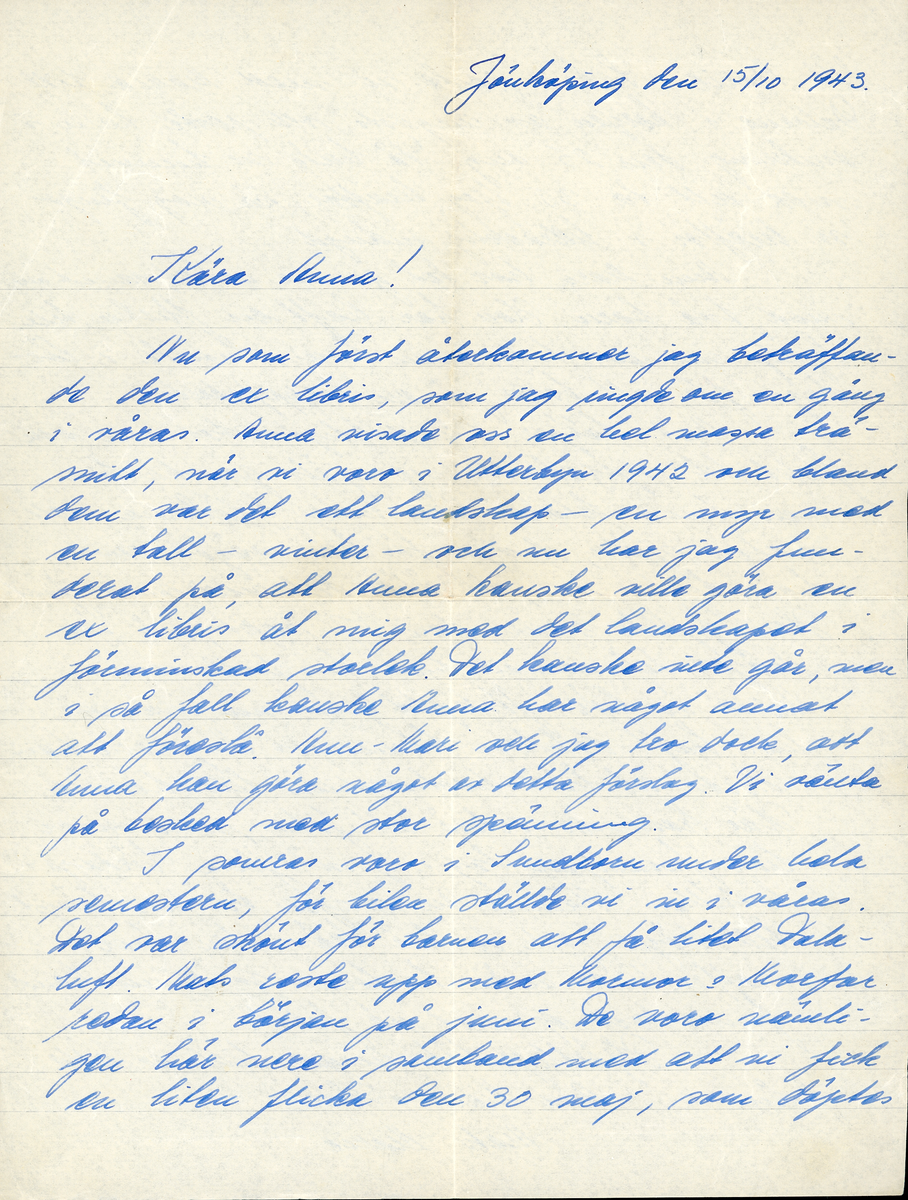 Jönköping den 15/10 1943.
Kära Anna!
Nu som först återkommer jag beträffan-
de den ex libris, som jag ringde om en gång
i våras. Anna visade oss en hel massa trä-
snitt, när vi voro i Utterbyn 1942 och bland
dem var det ett landskap – en myr med
en tall – vinter – och nu har jag fun-
derat på, att Anna kanske ville göra en
ex libris åt mig med det landskapet i
förminskad storlek. Det kanske inte går, men
i så fall kanske Anna har något annat
att föreslå. Ann-Mari och jag tro dock, att
Anna kan göra något av detta förslag. Vi vänta
på besked med stor spänning.
I somras voro i Sundborn under hela
semestern, för bilen ställde vi in i våras.
Det var skönt för barnen att få litet Dala-
luft. Mats reste upp med Mormor o Morfar
redan i början på juni. De voro nämli-
gen här nere i samband med att vi fick
en liten flicka den 30 maj, som döptes